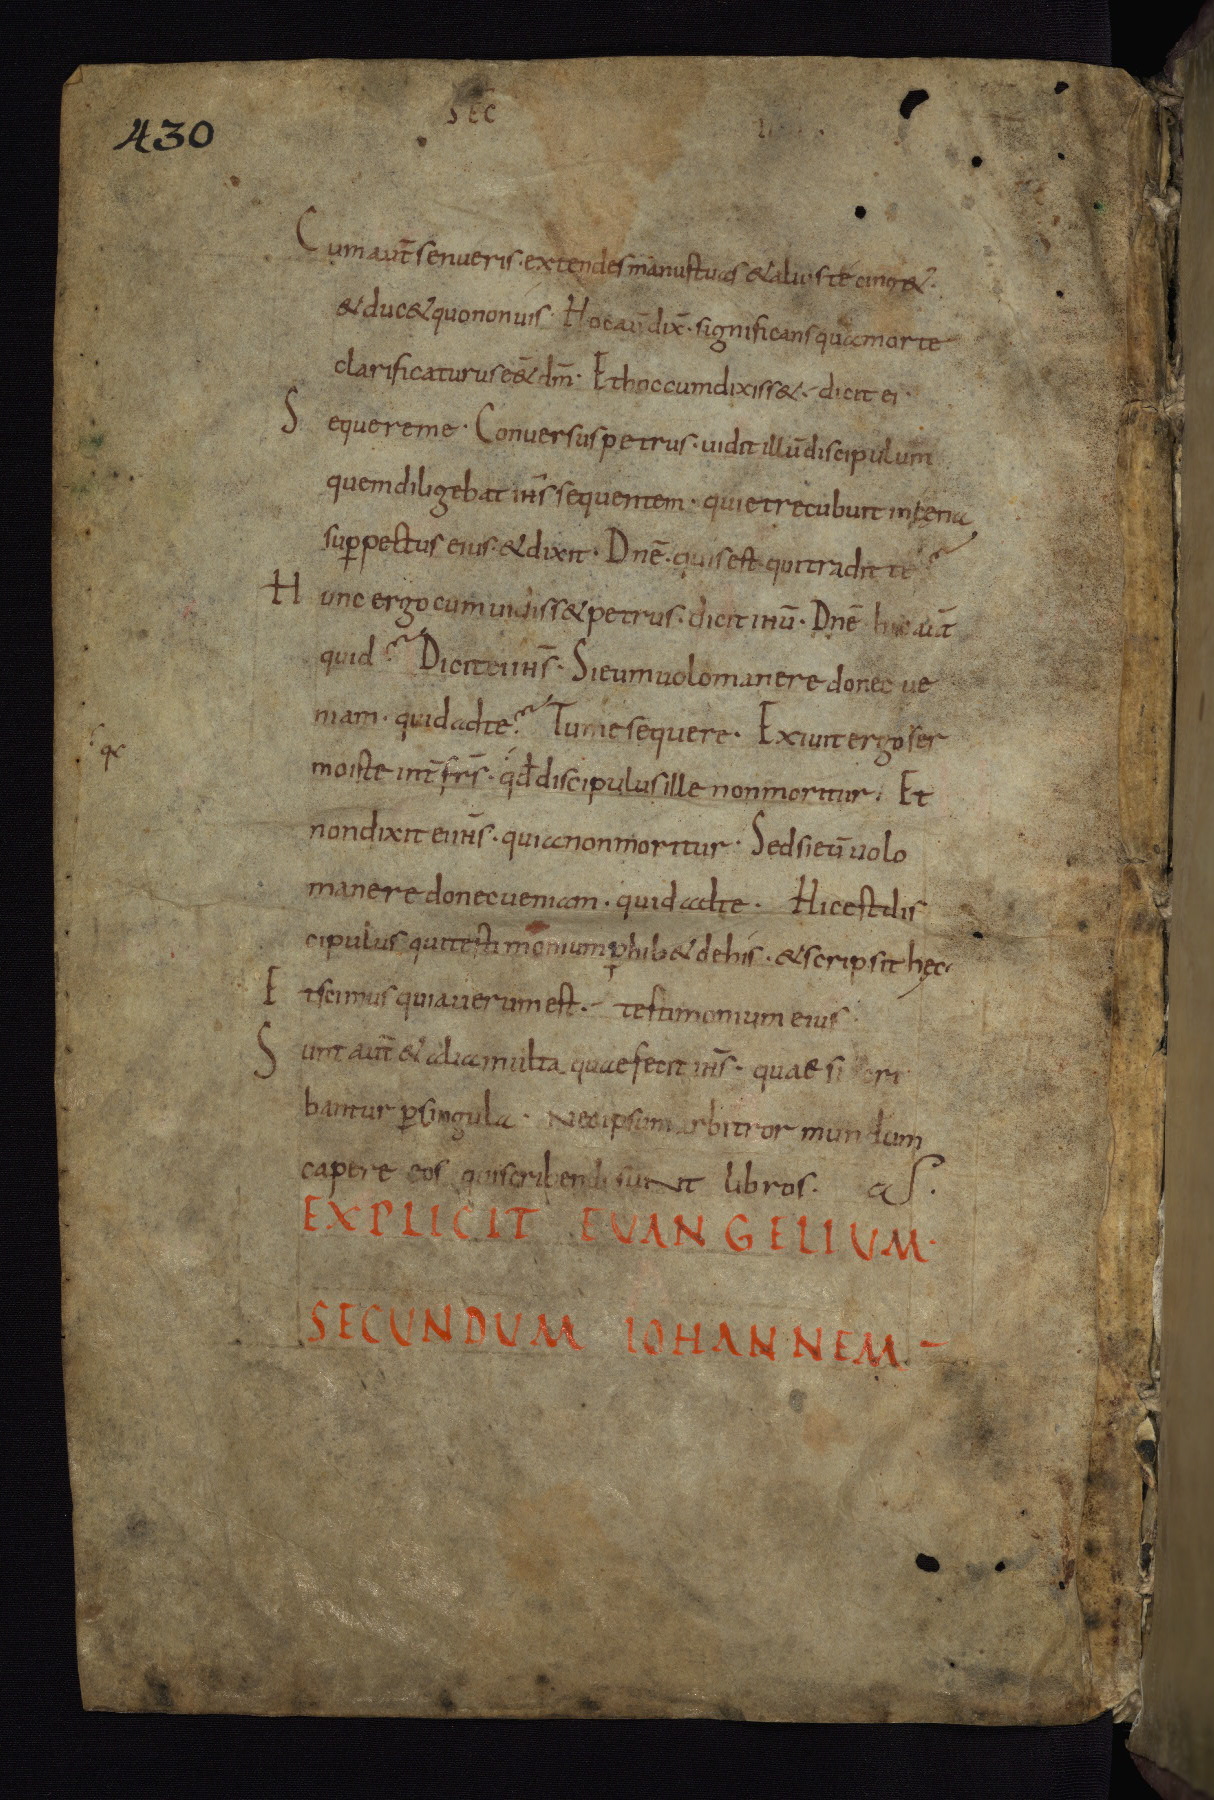 SEC
430
Cum aut̄ senueris · extendes manus tuas & alius te cing& ·
& duc& quo non uis · Hoc aū dix̄ · significans qua morte
clarificaturus eēt dm̄ · Et hoc cum dixiss& · dicit ei ·
Sequere me · Conuersus petrus · uidit illū discipulum
quem diligebat ih̄s sequentem · qui et recubuit in cena
sup pectus eius · & dixit · Dn̄e · quis est qui tradit te
Hunc ergo cum uidiss& petrus · dicit ih̄u · Dn̄e hic aūt
quid Dicit ei ih̄s · Si eum uolo manere donec ue
niam · quid ad te Tu me sequere · Exiuit ergo ser
qc
mo iste int̄ fr̄s · qđ discipulus ille non moritur · Et
non dixit ei ih̄s · quia non moritur · Sed si eū uolo
manere donec ueniam · quid ad te · Hic est dis
cipulus qui testimonium phib& de his · & scripsit hęc
Et scimus quia uerum est · testimonium eius
Sunt aut̄ & alia multa quae fecit ih̄s · quae si scri
bantur p singula · Nec ipsum arbitror mundum
capere eos qui scribendi sunt libros ·
EXPLICIT EUANGELIUM ·
SECUNDUM IOHANNEM